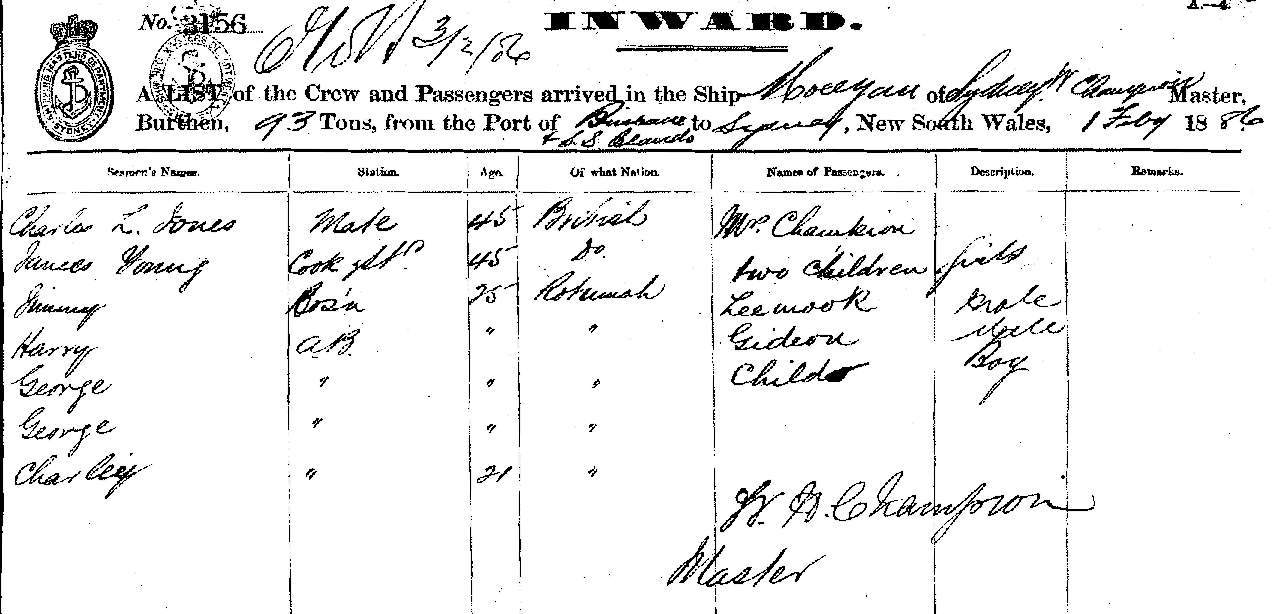 No. 3156
INWARD.
3/2/86
A LIST of the Crew and Passengers arrived in the Ship of Sydney W Champion Master,
Burthen, 93 Tons, from the Port of Brisbane to Sydney, New South Wales, 1 Feby 1886
& S. S. Islands
Seamen's Names. Station. Age. Of what Nation. Names of Passengers. Description. Remarks.
Charles L. Jones Mate 45 British Mrs. Champion
James Young Cook & Std. 45 Do. two children girls
Jimmy Bos'n 25 Rotumah Leemook Male
Harry A.B. " " Gideon Male
George " " " Child Boy
George " " "
Charley " 21 "
W. H. Champion
Master